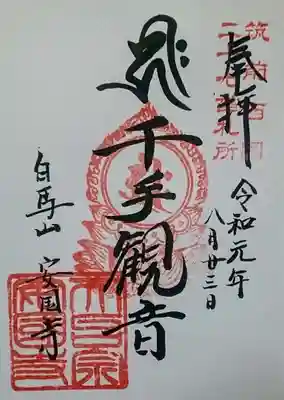 奉拝
筑前西国
令和元年
八月廿三日
千手観音
白馬山 安国寺